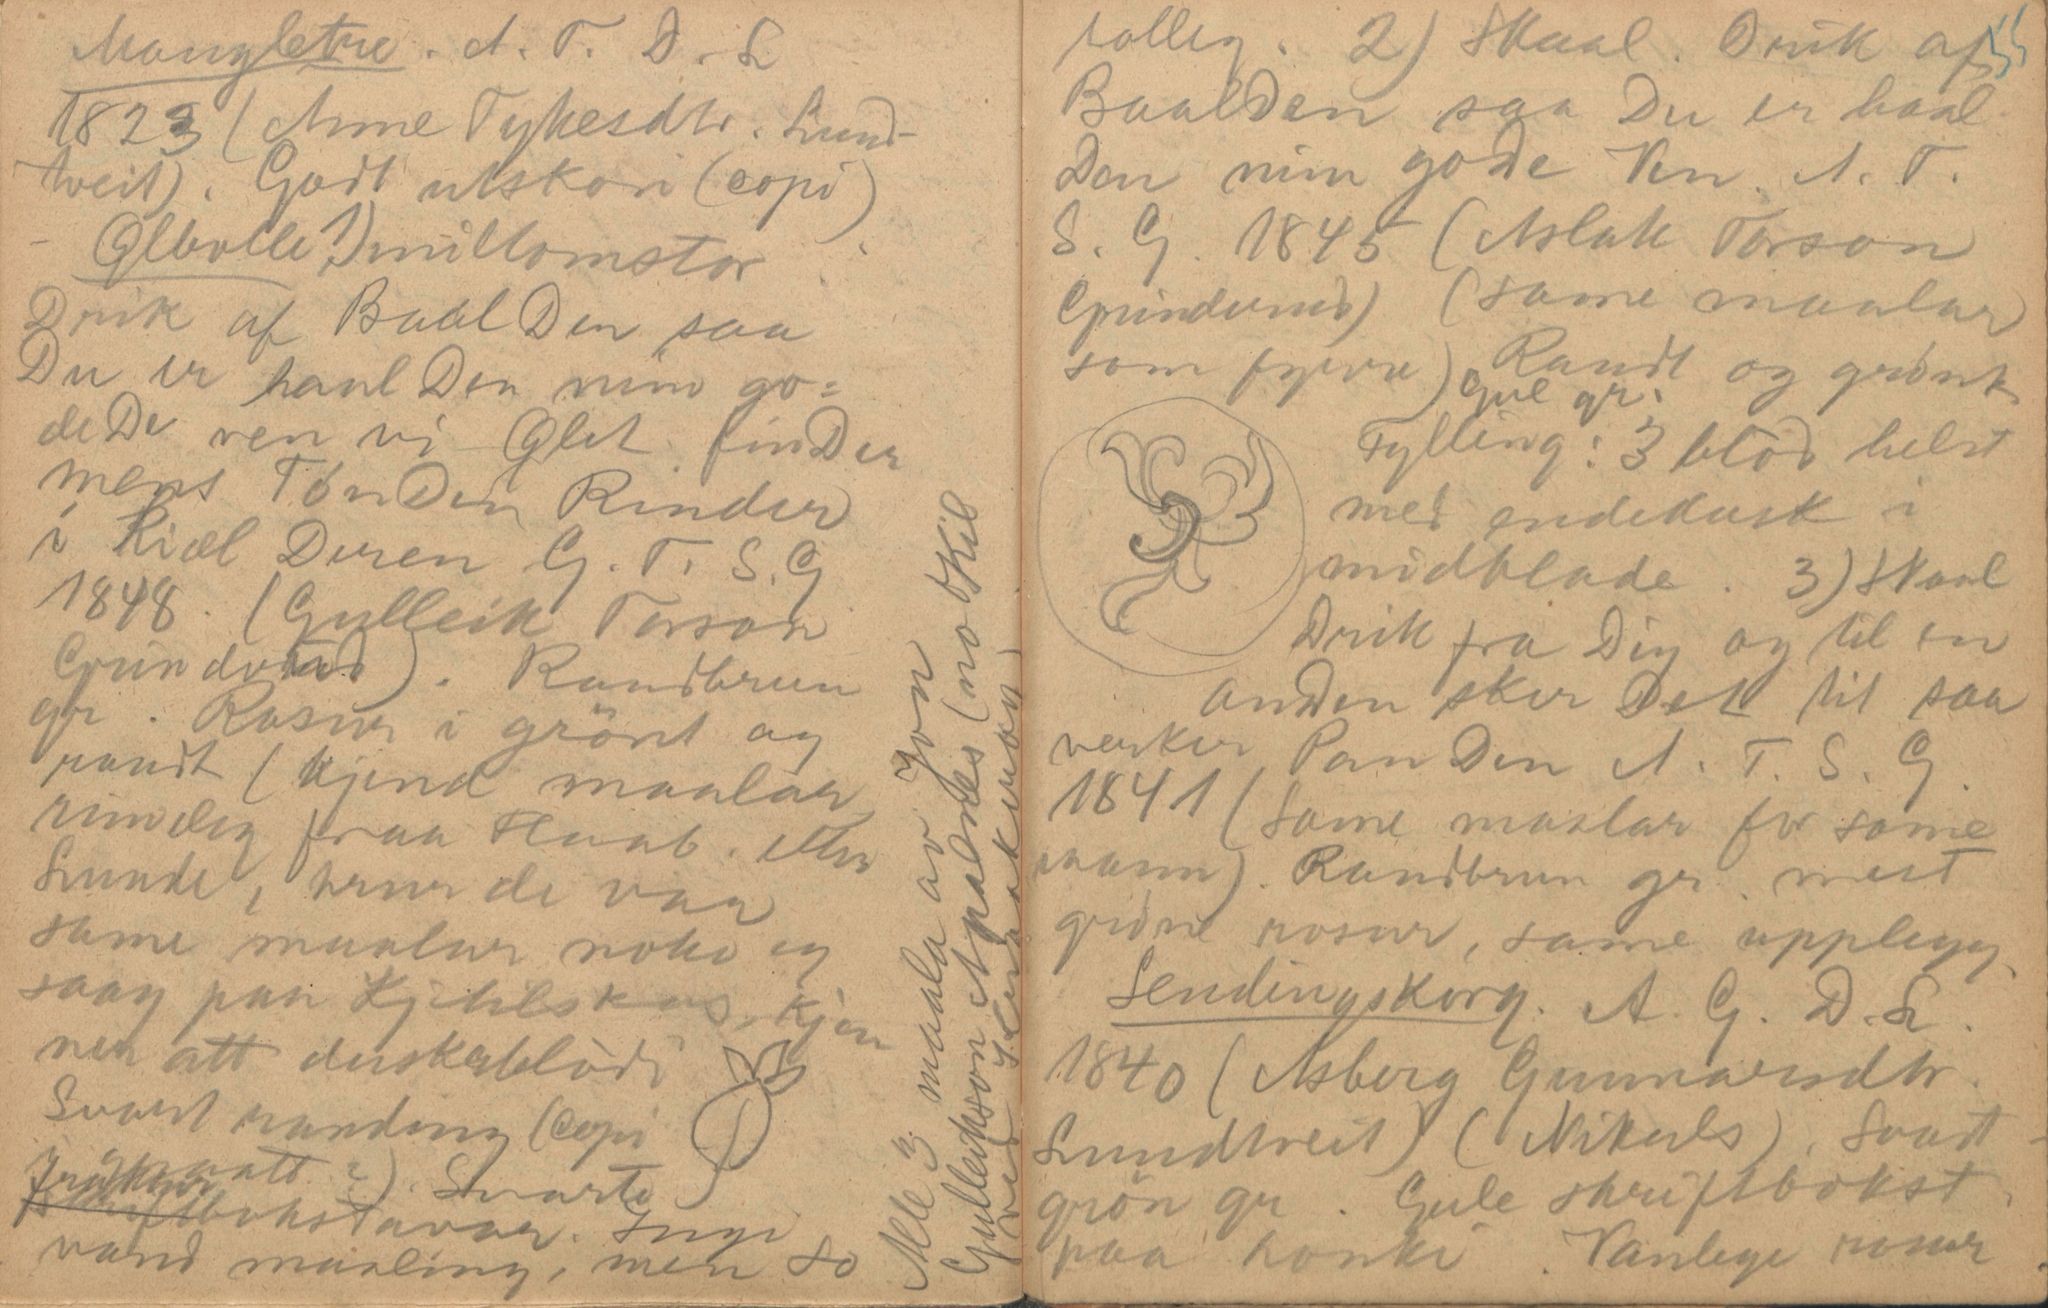 Mangletre. A. T. D. L
1823 (Anne Tykesdtr. Lund-
tveit). Godt utskori (copi)
- Ølbolle 1) millomstor
Drik af Baal Den saa
Du er haal Den min go=
deDe ven vi Ølet finDer
mens TønDen Rinder
i Kiæl Deren G. T. S. G
1848. (Gulleik Torson
Grinderud). Raudbrun
gr. Rosur i grönt og
raudt (kjend maalar
rimeleg fraa
Lunde, truur de var
same maalar noko eg
saag paa Kjetilskas, kjen
ner att duskeblödi
Svart randing (copi
att?). Svarte
skriftbokstavar. Ingi
vand maaling, men so
Alle 3 maala av Jon
Gulleikson (no Kil
ved
rolleg. 2) Skaal. Drik af 55
BaalDen saa Du er haal
Den min gode Ven. A. T.
S. G. 1845 (Aslak Torson
Grinderud) (same maalar
som fyrre) Raudt og grönt
Gul gr.
Fylling: 3 blöd helst
med endedusk i
midblade. 3) Skaal
Drik fra Dig og til en
anDen sker Det til saa
vesker PanDen A. T. S. G.
1841 (same maalar for same
mann). Raudbrun gr. mest
gröne rosur, same upplegg.
Sendingskorg. A. G. D. L.
1840 (Asberg Gunnarsdtr.
Lundtveit) (Nikuls). Svart-
grön gr. Gule skriftbokst.
paa honki. Vanlege rosur